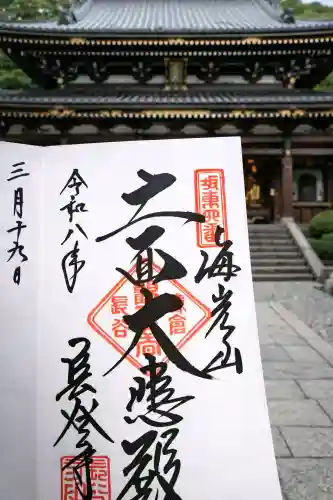 坂東四番
海光山
十一面大悲殿
鎌倉
長谷
令和八年
長谷寺
三月十九日